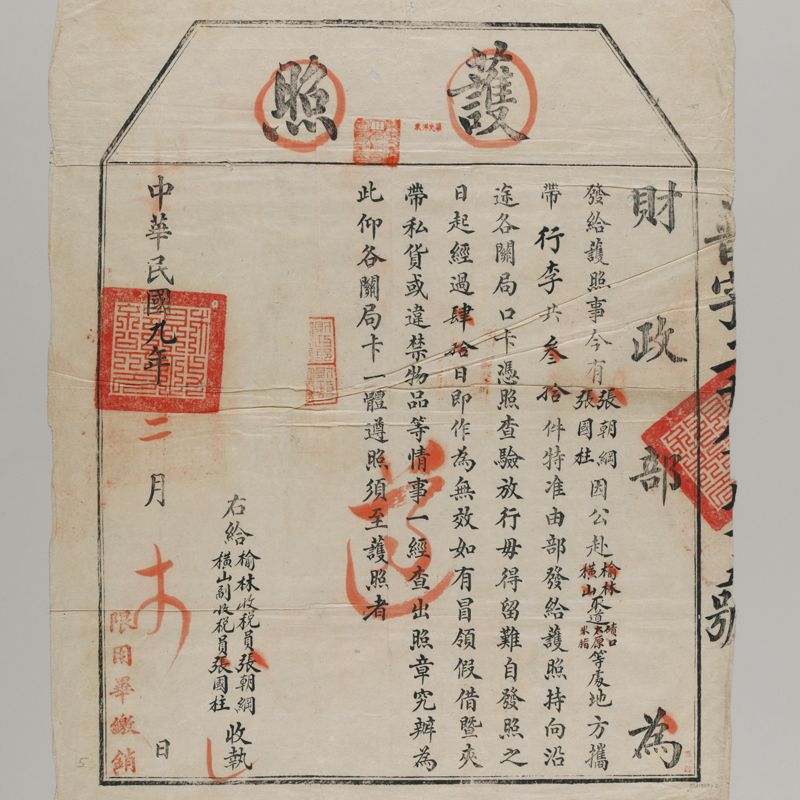 護照
財政部為
發給護照事今有張朝綱張國柱因公赴榆林橫山取道太原磧口米脂等處地方攜
帶行李共叁拾件特准由部發給護照持向沿
途各關局口卡憑照查驗放行毋得留難自發照之
日起經過肆拾日即作為無效如有冒領假借暨夾
帶私貨或違禁物品等情事一經查出照章究辦為
此仰各關局卡一體遵照須至護照者
右給榆林收稅員張朝綱橫山副收稅員張國柱收執
中華民國九年二月日
限用畢繳銷